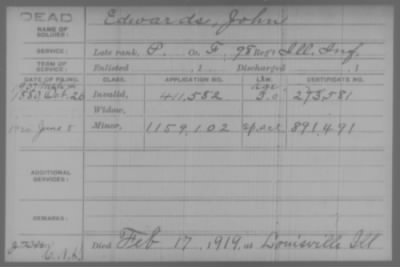 DEAD
NAME OF SOLDIER: Edwards, John
SERVICE: Late rank, P. Co. F, 98 Reg't Ill. Inf.
TERM OF SERVICE: Enlisted , 1 Discharged , 1
DATE OF FILING. CLASS. APPLICATION NO. LAW. CERTIFICATE NO.
Invalid, 411,582 273,581
Widow,
June 8 Minor, 1159,102 891,491
ADDITIONAL SERVICES:
REMARKS:
Died Feb 17, 1919, at Louisville Ill